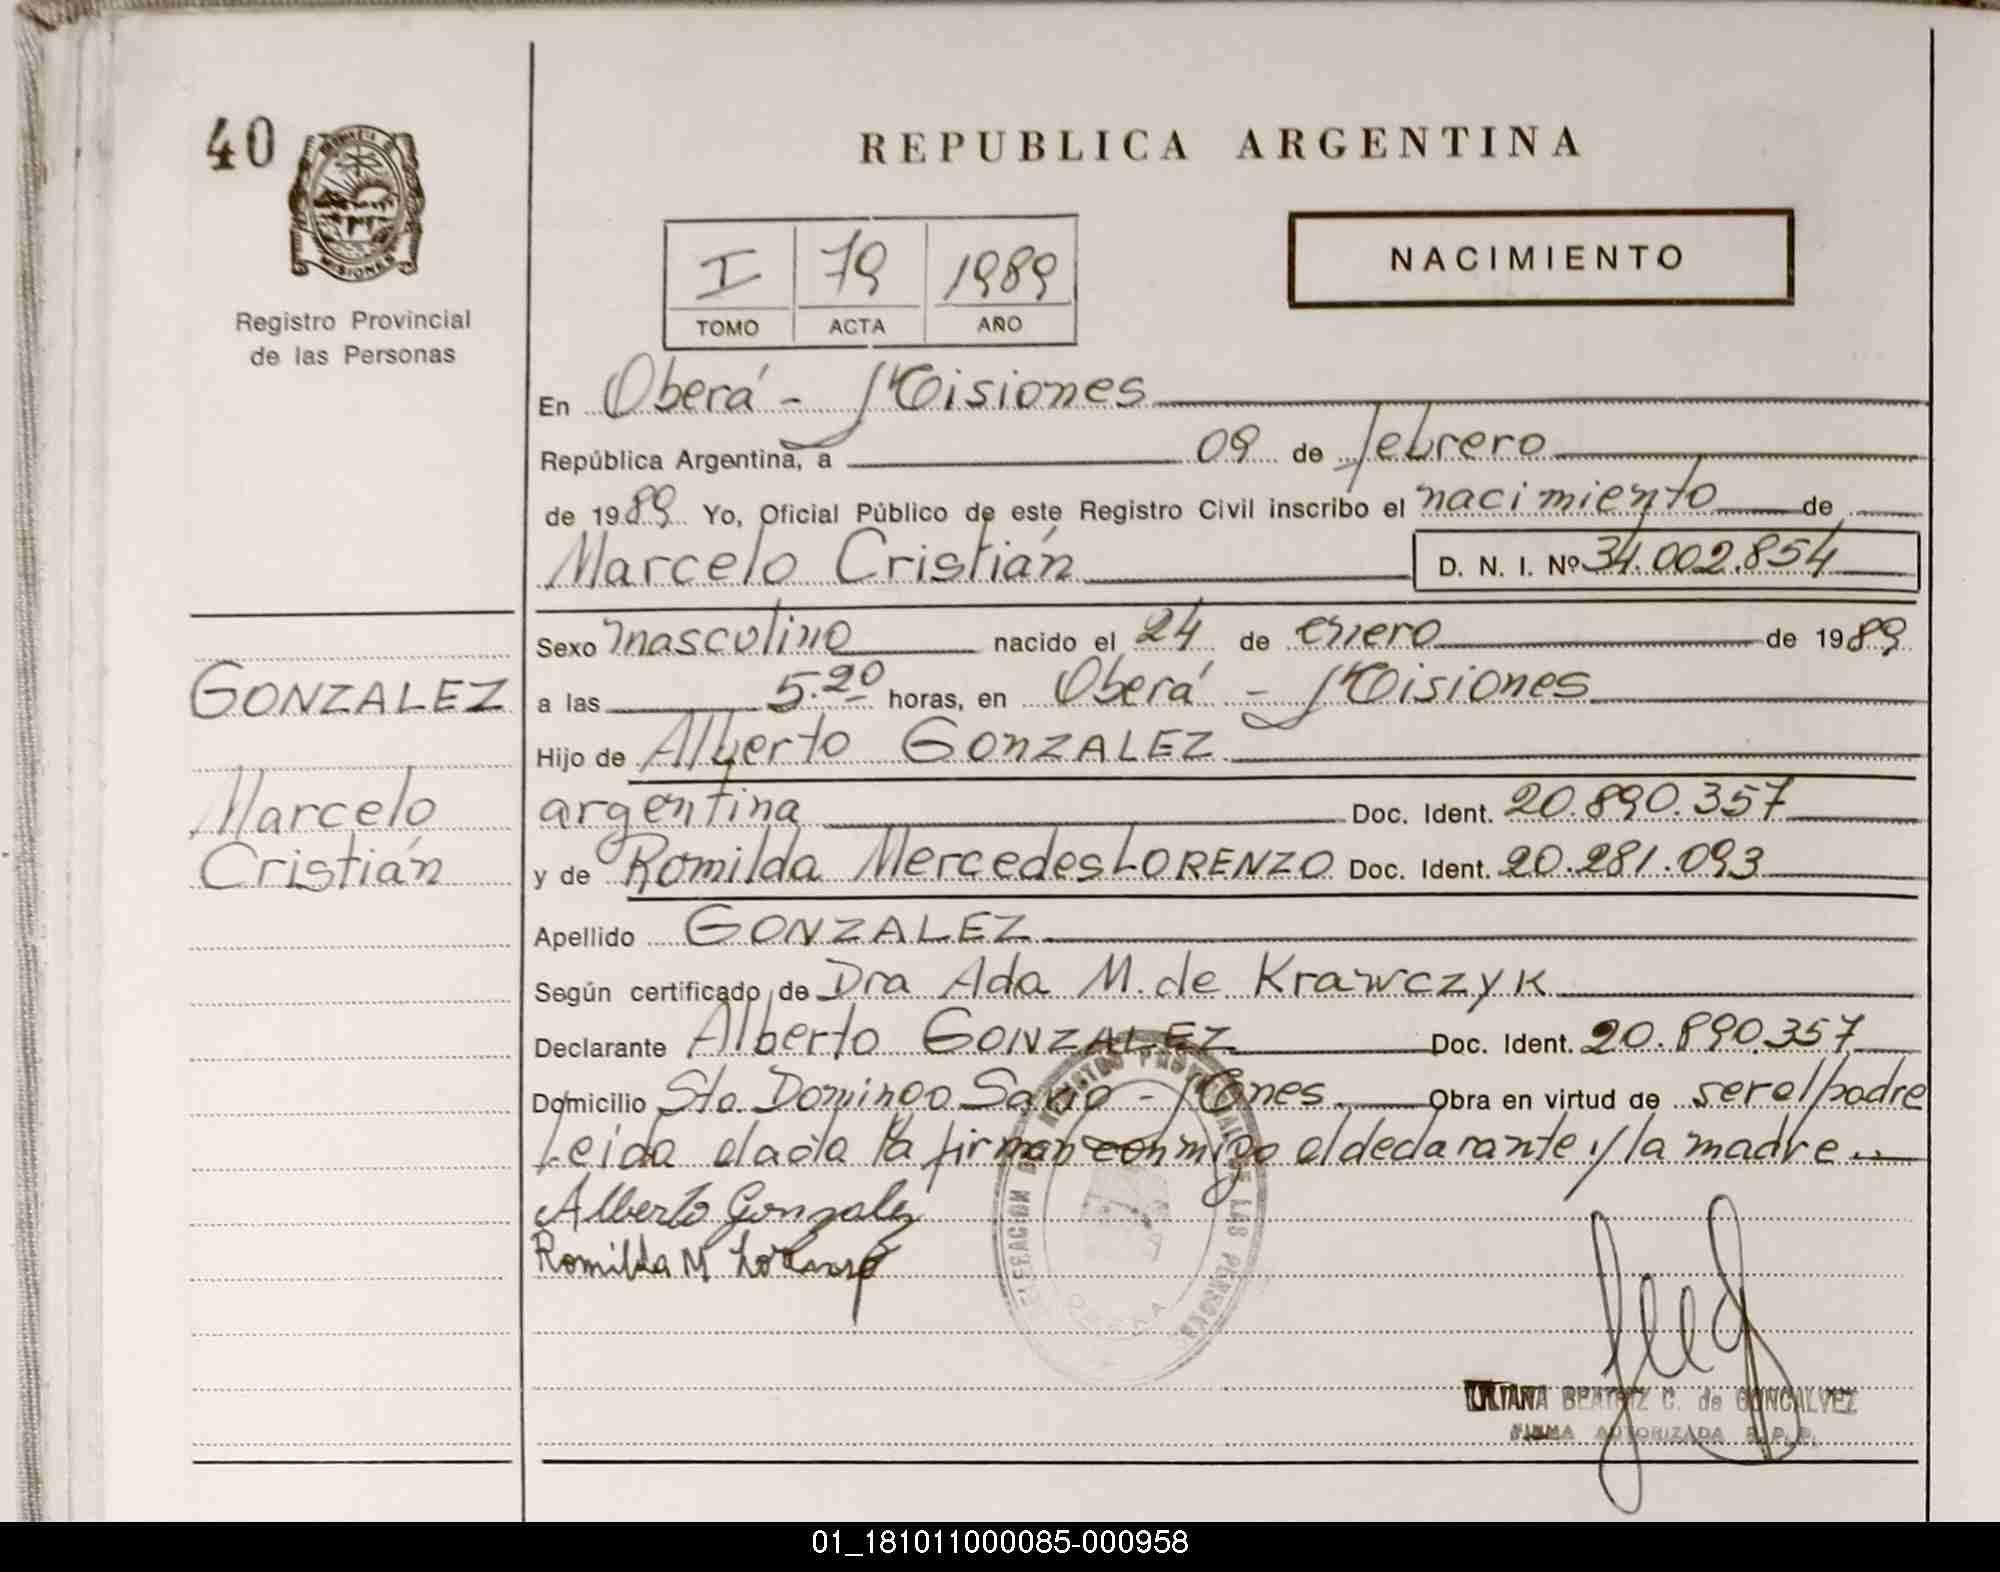 40
MISIONES
Registro Provincial
de las Personas
REPUBLICA ARGENTINA
NACIMIENTO
I 79 1989
TOMO ACTA AÑO
En Oberá - Misiones
República Argentina, a 09 de febrero
de 1989 Yo, Oficial Público de este Registro Civil inscribo el nacimiento de
Marcelo Cristián D. N. I. Nº 34.002.854
Sexo masculino nacido el 24 de enero de 1989
a las 5.20 horas, en Oberá - Misiones
Hijo de Alberto GONZALEZ
argentina Doc. Ident. 20.890.357
y de Romilda Mercedes LORENZO Doc. Ident. 20.281.093
Apellido GONZALEZ
Según certificado de Dra Ada M. de Krawczyk
Declarante Alberto GONZALEZ Doc. Ident. 20.890.357
Domicilio Sto. Domingo Savio - Mnes. Obra en virtud de ser el padre
Leida el acta la firman conmigo el declarante y la madre..
Alberto Gonzalez
Romilda M Lorenzo
GONZALEZ
Marcelo
Cristián
REGISTRO PROVINCIAL DE LAS PERSONAS
OBERA
LILIANA BEATRIZ C. de GONCALVEZ
FIRMA AUTORIZADA R. P. P.
01_181011000085-000958